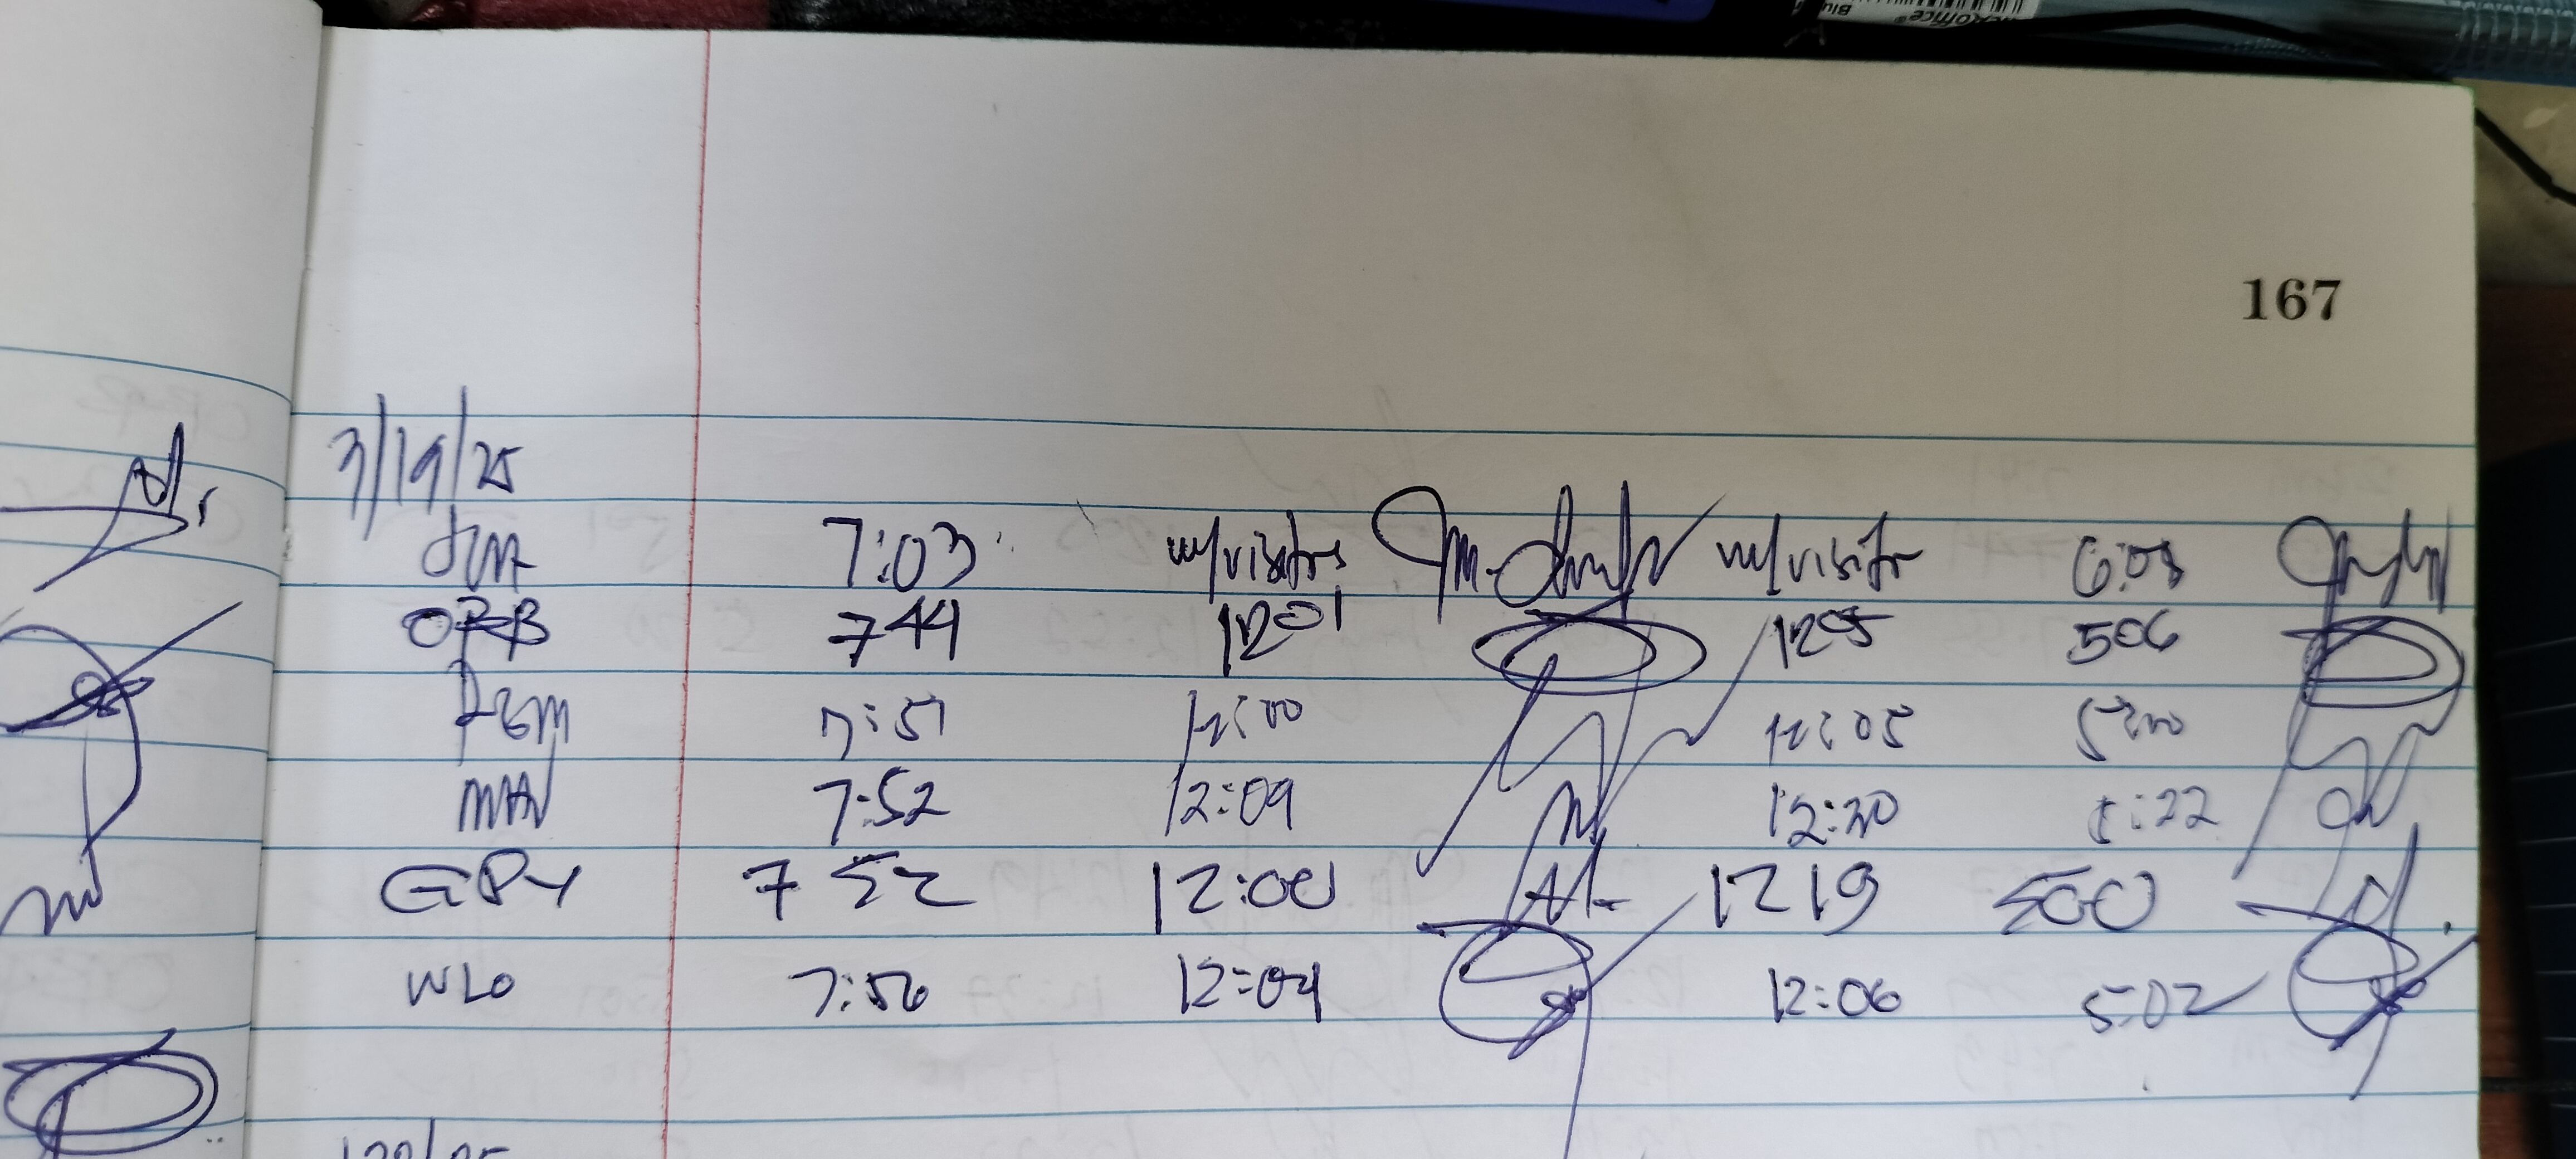 167
3/19/25
7:03 w/visitors w/visitor 6:08
ORB 744 1201 1205 506
7:51 12:00 12:05 5:00
MAV 7:52 12:09 12:20 5:22
GPY 7 52 12:00 1219 500
WLO 7:56 12:04 12:06 5:02